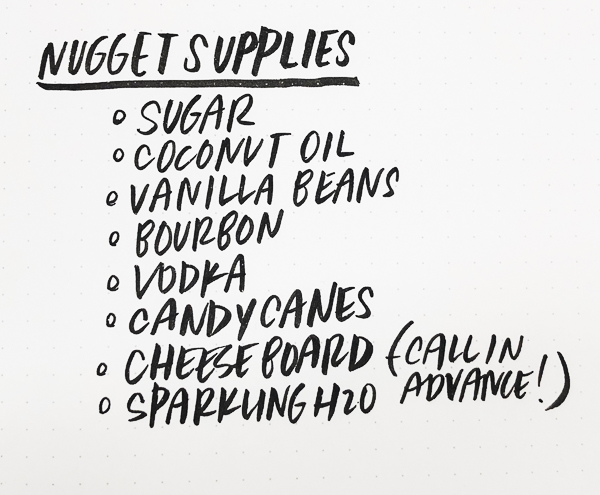 NUGGET SUPPLIES
○ SUGAR
○ COCONUT OIL
○ VANILLA BEANS
○ BOURBON
○ VODKA
○ CANDY CANES
○ CHEESE BOARD (CALL IN ADVANCE!)
○ SPARKLING H2O